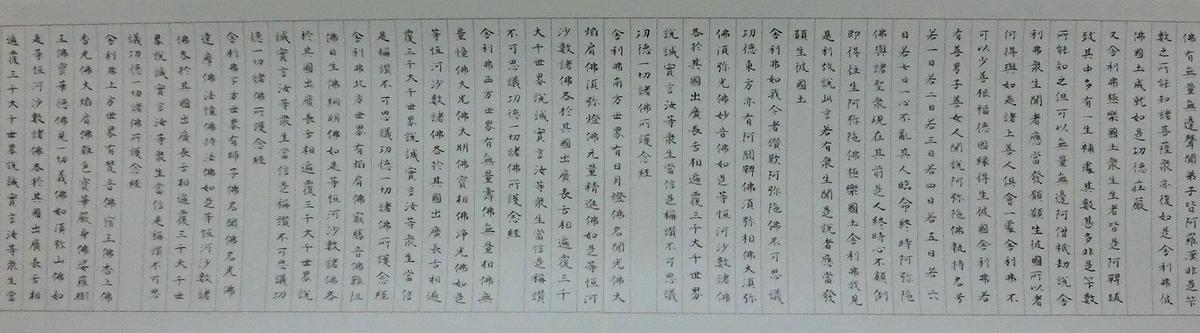 佛有無量無邊聲聞弟子皆阿羅漢非是筭
數之所能知諸菩薩衆亦復如是舍利弗彼
佛國土成就如是功德莊嚴
又舍利弗極樂國土衆生生者皆是阿鞞跋
致其中多有一生補處其數甚多非是筭數
所能知之但可以無量無邊阿僧祇劫說舍
利弗衆生聞者應當發願願生彼國所以者
何得與如是諸上善人俱會一處舍利弗不
可以少善根福德因緣得生彼國舍利弗若
有善男子善女人聞說阿彌陀佛執持名号
若一日若二日若三日若四日若五日若六
日若七日一心不亂其人臨命終時阿彌陀
佛與諸聖衆現在其前是人終時心不顛倒
即得往生阿彌陀佛極樂國土舍利弗我見
是利故說此言若有衆生聞是說者應當發
願生彼國土
舍利弗如我今者讚歎阿彌陀佛不可思議
功德東方亦有阿閦鞞佛須彌相佛大須彌
佛須彌光佛妙音佛如是等恒河沙數諸佛
各於其國出廣長舌相遍覆三千大千世界
說誠實言汝等衆生當信是稱讚不可思議
功德一切諸佛所護念經
舍利弗南方世界有日月燈佛名聞光佛大
焰肩佛須彌燈佛无量精進佛如是等恒河
沙數諸佛各於其國出廣長舌相遍覆三千
大千世界說誠實言汝等衆生當信是稱讚
不可思議功德一切諸佛所護念經
舍利弗西方世界有無量壽佛無量相佛無
量幢佛大光佛大明佛寶相佛淨光佛如是
等恒河沙數諸佛各於其國出廣長舌相遍
覆三千大千世界說誠實言汝等衆生當信
是稱讚不可思議功德一切諸佛所護念經
舍利弗北方世界有焰肩佛最勝音佛難沮
佛日生佛網明佛如是等恒河沙數諸佛各
於其國出廣長舌相遍覆三千大千世界說
誠實言汝等衆生當信是稱讚不可思議功
德一切諸佛所護念經
舍利弗下方世界有師子佛名聞佛名光佛
達摩佛法幢佛持法佛如是等恒河沙數諸
佛各於其國出廣長舌相遍覆三千大千世
界說誠實言汝等衆生當信是稱讚不可思
議功德一切諸佛所護念經
舍利弗上方世界有梵音佛宿王佛香上佛
香光佛大焰肩佛雜色寶華嚴身佛娑羅樹
王佛寶華德佛見一切義佛如須彌山佛如
是等恒河沙數諸佛各於其國出廣長舌相
遍覆三千大千世界說誠實言汝等衆生當